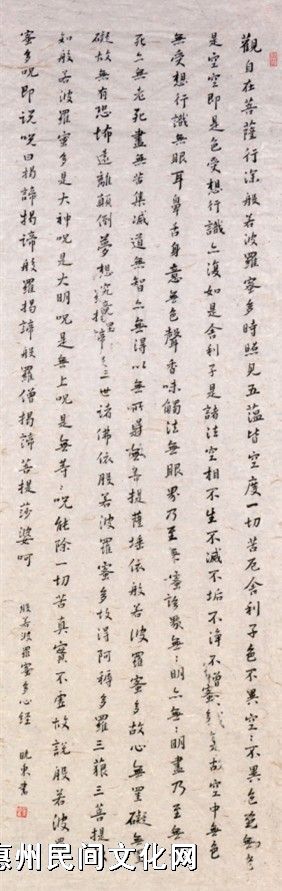 觀自在菩薩行深般若波羅蜜多時照見五蘊皆空度一切苦厄舍利子色不異空〻不異色
是空空即是色受想行識亦復如是舍利子是諸法空相不生不滅不垢不淨不增 故空中無色
無受想行識無眼耳鼻舌身意無色聲香味觸法無眼界乃至 無〻明亦無〻明盡乃至無
死亦無老死盡無苦集滅道無智亦無得以無所得故菩提薩埵依般若波羅蜜多故心無罣礙無罣
礙故無有恐怖遠離顛倒夢想究竟 三世諸佛依般若波羅蜜多故得阿耨多羅三藐三菩提
如般若波羅蜜多是大神咒是大明咒是無上咒是無等〻咒能除一切苦真實不虛故說般若波羅
蜜多咒即說咒曰揭諦揭諦般羅揭諦般羅僧揭諦菩提莎婆呵
般若波羅蜜多心經 東書
惠州民间文化网